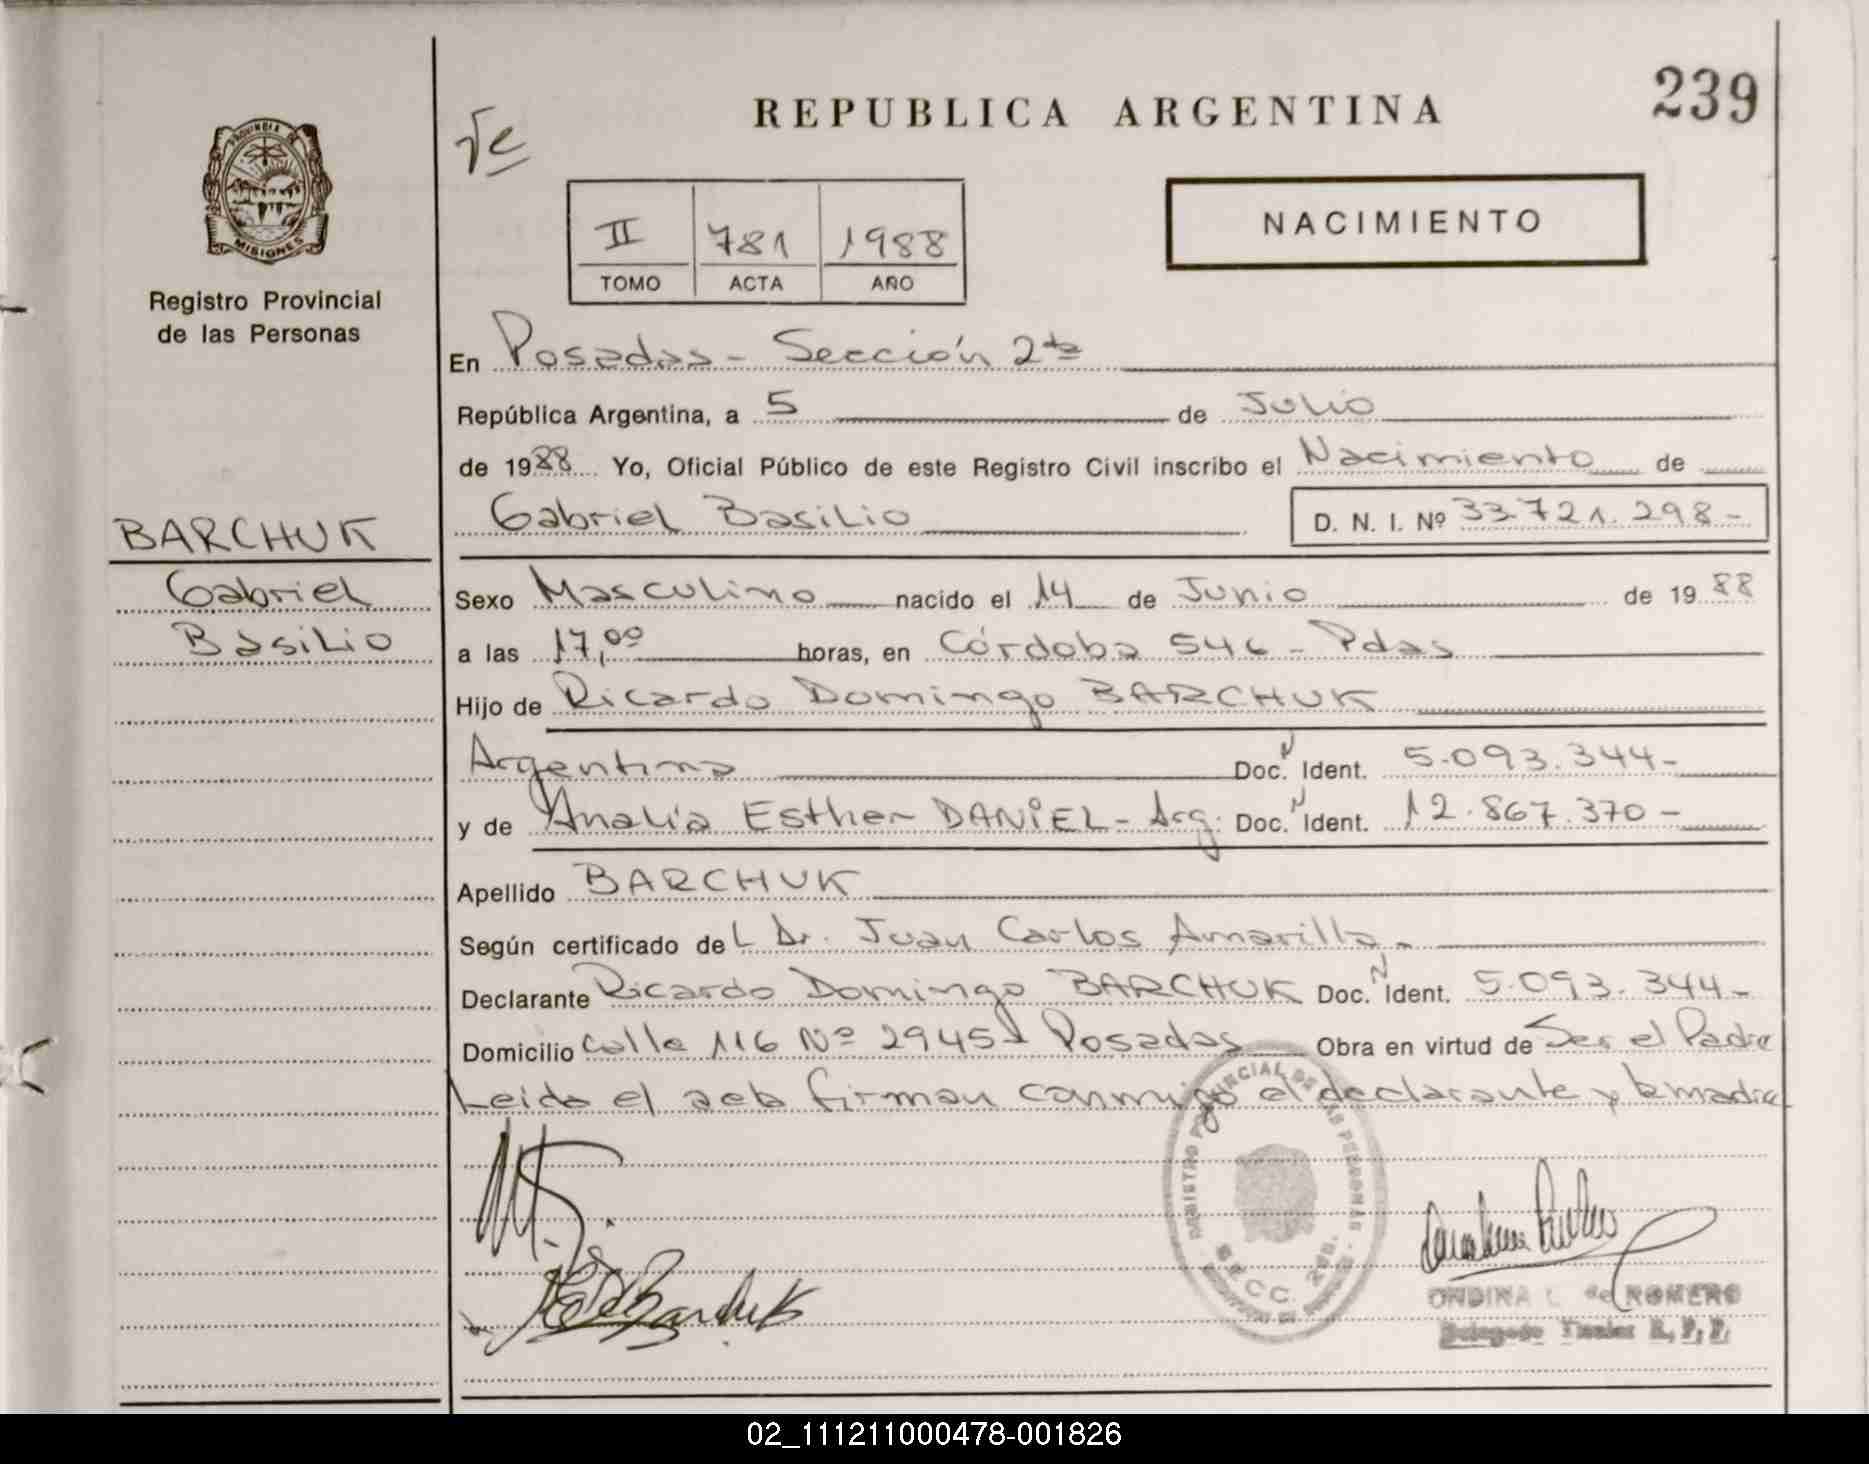 REPUBLICA ARGENTINA
239
PROVINCIA DE
MISIONES
Registro Provincial
de las Personas
II 781 1988
TOMO ACTA AÑO
NACIMIENTO
En Posadas - Sección 2da
República Argentina, a 5 de Julio
de 1988 Yo, Oficial Público de este Registro Civil inscribo el Nacimiento de
Gabriel Basilio D. N. I. Nº 33.721.298-
BARCHUK
Gabriel
Basilio
Sexo Masculino nacido el 14 de Junio de 1988
a las 17,00 horas, en Córdoba 546 - Pdas
Hijo de Ricardo Domingo BARCHUK
Argentina Doc. N Ident. 5.093.344-
y de Analía Esther DANIEL - Arg. Doc. N Ident. 12.867.370-
Apellido BARCHUK
Según certificado del Dr. Juan Carlos Amarilla-
Declarante Ricardo Domingo BARCHUK Doc. N Ident. 5.093.344-
Domicilio Calle 116 Nº 2945 Posadas Obra en virtud de Ser el Padre
Leida el acta firman conmigo el declarante y la madre
REGISTRO PROVINCIAL DE LAS PERSONAS
SECC. 2da.
ONDINA L. de ROMERO
Delegado Titular R. P. P.
02_111211000478-001826